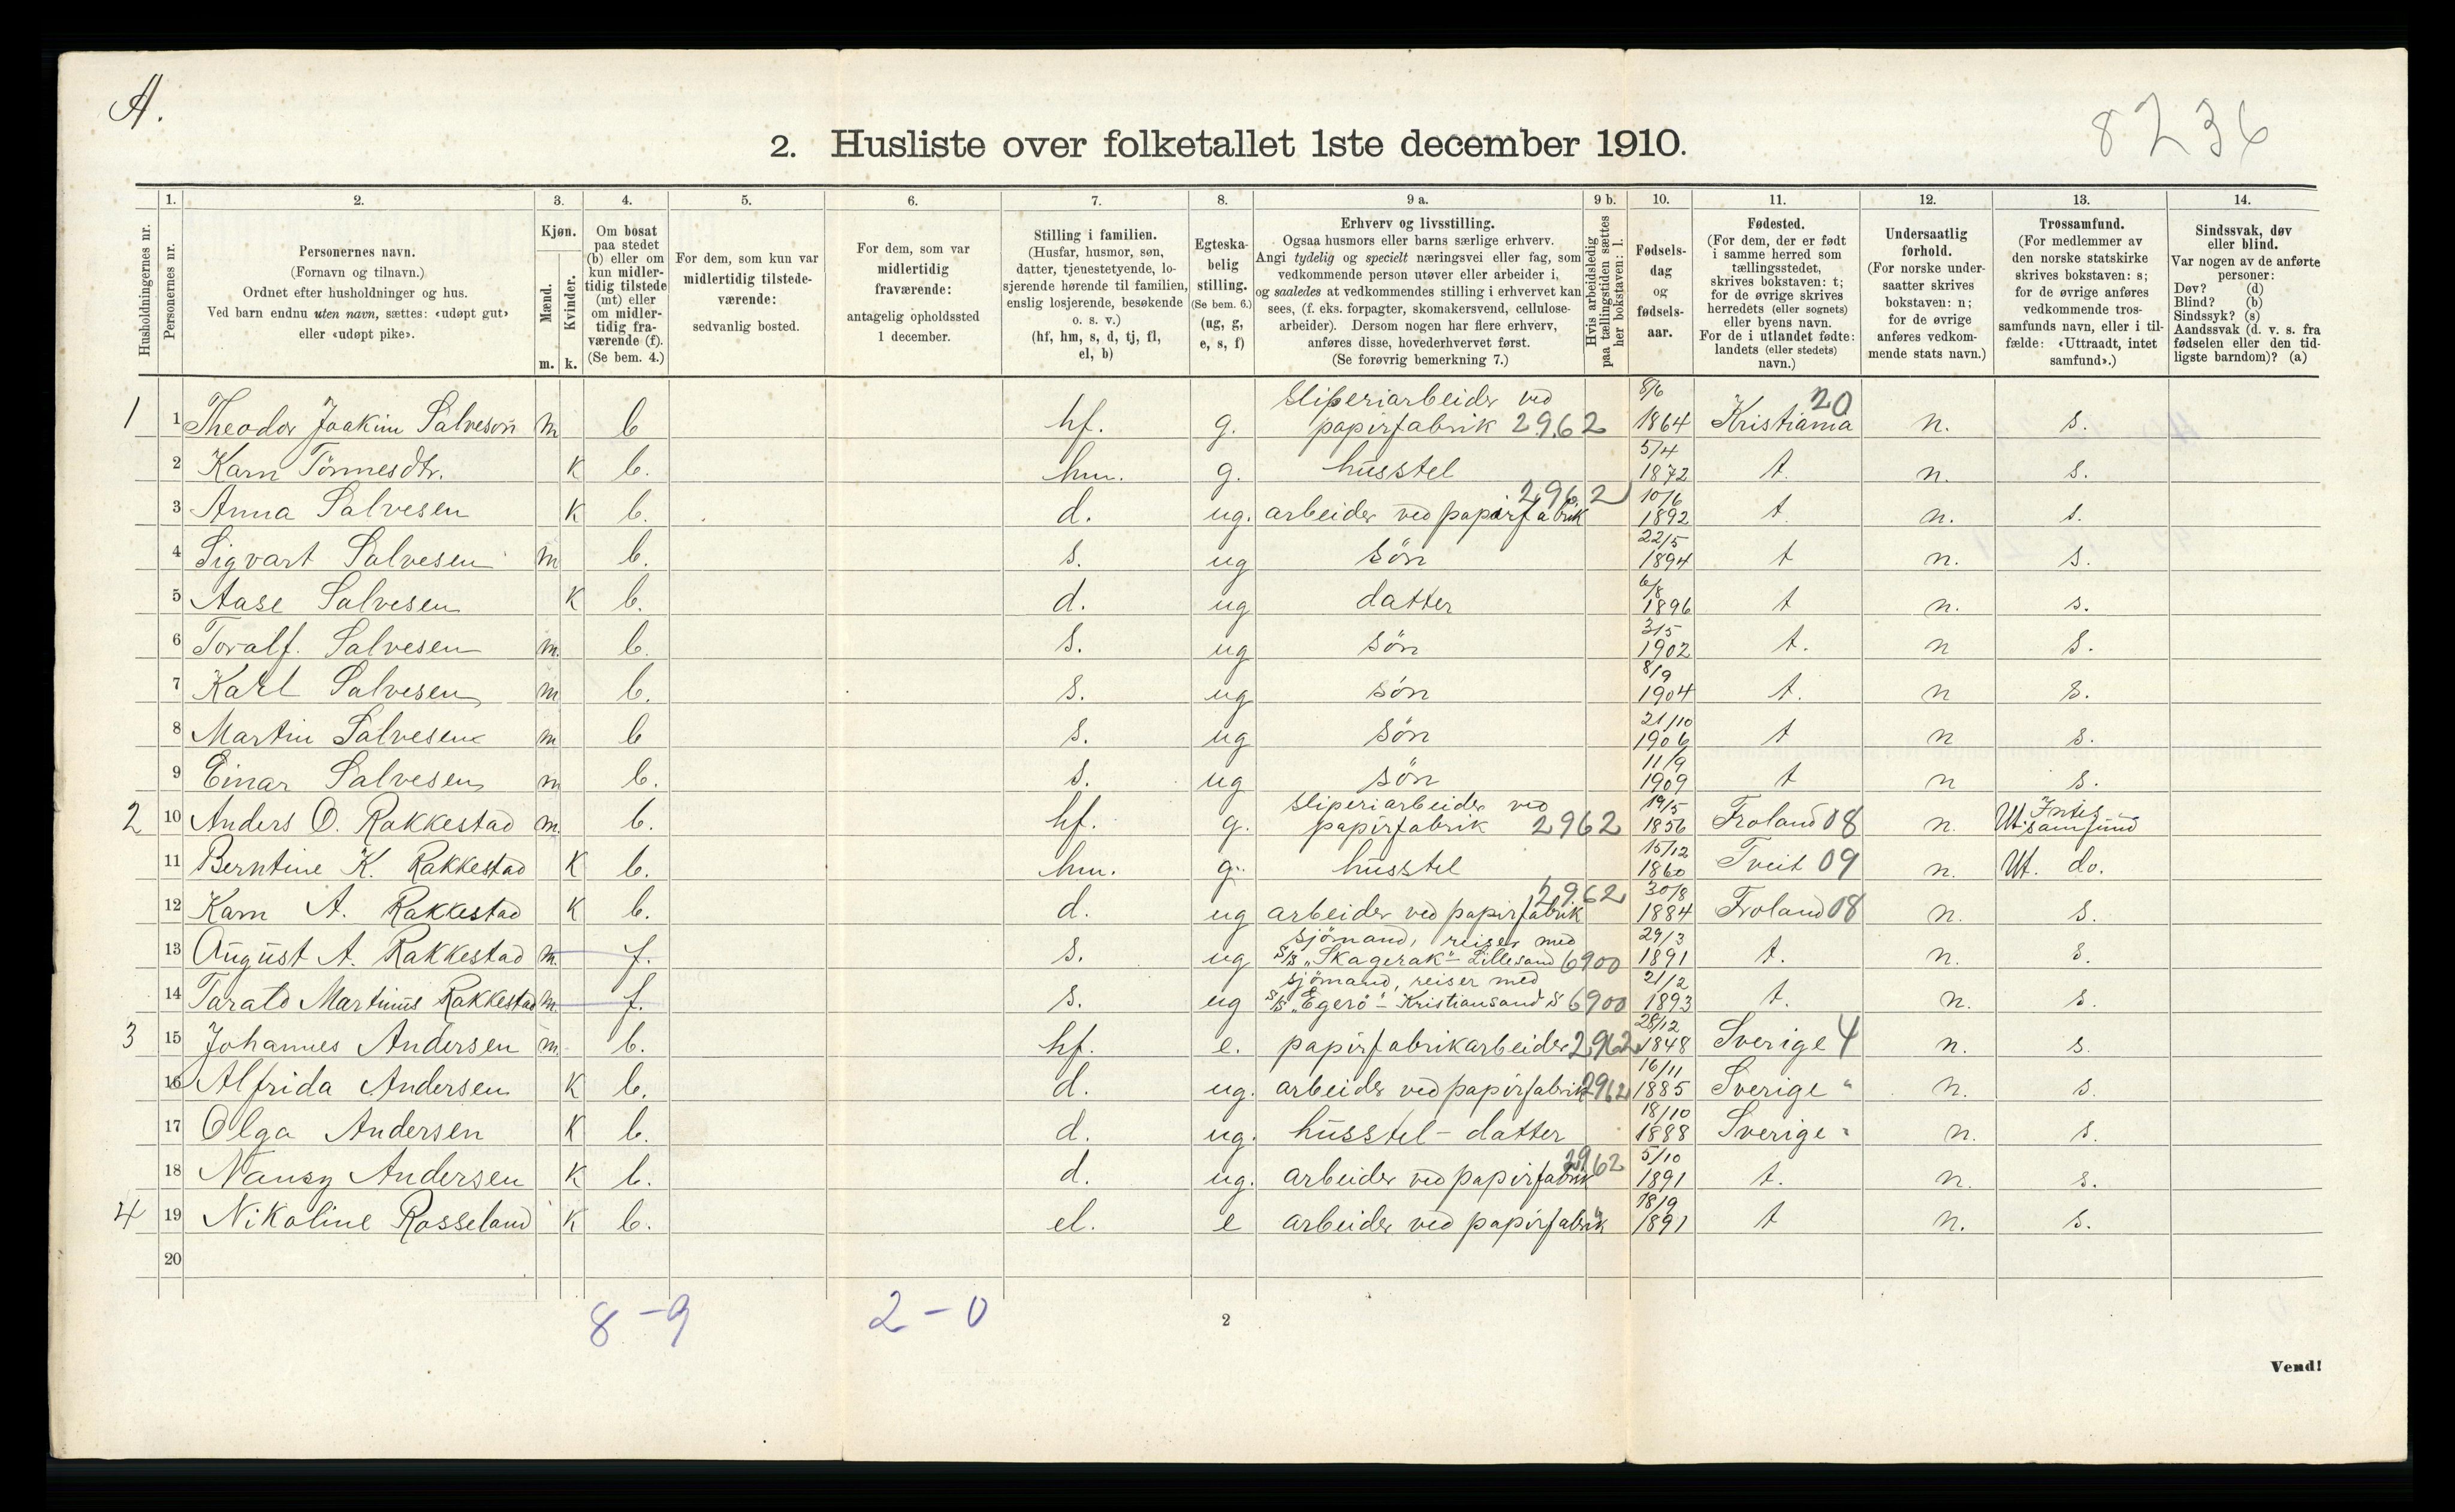 A.
8236
2. Husliste over folketallet 1ste december 1910.
Husholdningernes nr.
1. Personernes nr.
2. Personernes navn.
(Fornavn og tilnavn.)
Ordnet efter husholdninger og hus.
Ved barn endnu uten navn, sættes: «udøpt gut»
eller «udøpt pike».
3. Kjøn.
Mænd. m.
Kvinder. k.
4. Om bosat
paa stedet
(b) eller om
kun midler-
tidig tilstede
(mt) eller
om midler-
tidig fra-
værende (f).
(Se bem. 4.)
5. For dem, som kun var
midlertidig tilstede-
værende:
sedvanlig bosted.
6. For dem, som var
midlertidig
fraværende:
antagelig opholdssted
1 december.
7. Stilling i familien.
(Husfar, husmor, søn,
datter, tjenestetyende, lo-
sjerende hørende til familien,
enslig losjerende, besøkende
o. s. v.)
(hf, hm, s, d, tj, fl,
el, b)
8. Egteska-
belig
stilling.
(Se bem. 6.)
(ug, g,
e, s, f)
9 a. Erhverv og livsstilling.
Ogsaa husmors eller barns særlige erhverv.
Angi tydelig og specielt næringsvei eller fag, som
vedkommende person utøver eller arbeider i,
og saaledes at vedkommendes stilling i erhvervet kan
sees, (f. eks. forpagter, skomakersvend, cellulose-
arbeider). Dersom nogen har flere erhverv,
anføres disse, hovederhvervet først.
(Se forøvrig bemerkning 7.)
9 b. Hvis arbeidsledig
paa tællingstiden sættes
her bokstaven: l.
10. Fødsels-
dag
og
fødsels-
aar.
11. Fødested.
(For dem, der er født
i samme herred som
tællingsstedet,
skrives bokstaven: t;
for de øvrige skrives
herredets (eller sognets)
eller byens navn.
For de i utlandet fødte:
landets (eller stedets)
navn.)
12. Undersaatlig
forhold.
(For norske under-
saatter skrives
bokstaven: n;
for de øvrige
anføres vedkom-
mende stats navn.)
13. Trossamfund.
(For medlemmer av
den norske statskirke
skrives bokstaven: s;
for de øvrige anføres
vedkommende tros-
samfunds navn, eller i til-
fælde: «Uttraadt, intet
samfund».)
14. Sindssvak, døv
eller blind.
Var nogen av de anførte
personer:
Døv? (d)
Blind? (b)
Sindssyk? (s)
Aandssvak (d. v. s. fra
fødselen eller den tid-
ligste barndom)? (a)
1 1 Theodor Joakim Salvesen m b hf. g. Sliperiarbeider ved papirfabrik 2962 8/6 1864 Kristiania 20 n. s.
2 Karn Tönnesdtr. K b. hm. g. husstel 5/4 1872 t. n. s.
3 Anna Salvesen K b. d. ug. arbeider ved papirfabrik 2962 10/6 1892 t n. s.
4 Sigvart Salvesen m b. s. ug sön 22/5 1894 t n. s.
5 Aase Salvesen K b. d. ug datter 6/8 1896 t n. s.
6 Toralf. Salvesen m. b. s. ug sön 3/5 1902 t. n s.
7 Karl Salvesen m b. s. ug sön 8/9 1904 t. n s.
8 Martin Salvesen m b s. ug sön 21/10 1906 t n s.
9 Einar Salvesen m b. s. ug sön 11/9 1909 t n s.
2 10 Anders O. Rakkestad m. b. hf. g. sliperiarbeider ved papirfabrik 2962 19/5 1856 Froland 08 n. Ut. Intet samfund
11 Berntine K. Rakkestad K b. hm. g. husstel 15/12 1860 Tveit 09 n. Ut. do.
12 Karn A. Rakkestad K b. d. ug arbeider ved papirfabrik 2962 30/8 1884 Froland 08 n. s.
13 August A. Rakkestad m. f. s. ug sjömand, reiser med S/S "Skagerak" - Lillesand 6900 29/3 1891 t. n. s.
14 Tarald Martinus Rakkestad m. f. s. ug sjömand, reiser med S/S "Egerö" - Kristiansand S 6900 21/2 1893 t. n. s.
3 15 Johannes Andersen m. b. hf. e. papirfabrikarbeider 2962 28/12 1848 Sverige 4 n. s.
16 Alfrida Andersen K b. d. ug. arbeider ved papirfabrik 2962 16/11 1885 Sverige " n. s.
17 Olga Andersen K b. d. ug. husstel - datter 18/10 1888 Sverige " n. s.
18 Nancy Andersen K b. d. ug. arbeider ved papirfabrik 2962 5/10 1891 t. n. s.
4 19 Nikoline Rosseland K b. el. e arbeider ved papirfabrik 18/9 1891 t n. s.
20
8-9 2-0
2
Vend!